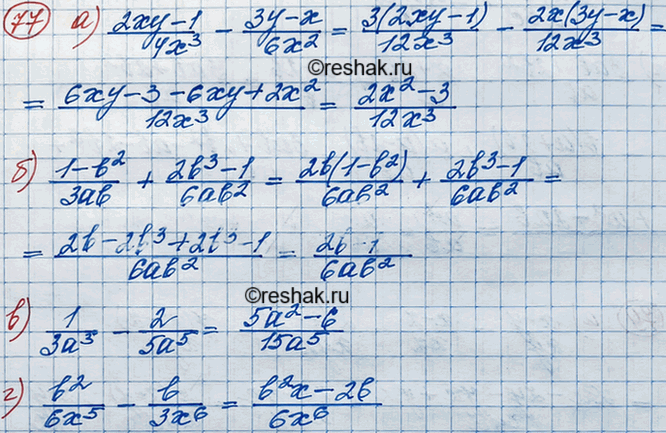 77 а) (2xy-1)/(4x³) - (3y-x)/(6x²) = (3(2xy-1))/(12x³) - (2x(3y-x))/(12x³) =
©reshak.ru
= (6xy-3-6xy+2x²)/(12x³) = (2x²-3)/(12x³)
б) (1-b²)/(3ab) + (2b³-1)/(6ab²) = (2b(1-b²))/(6ab²) + (2b³-1)/(6ab²) =
= (2b-2b³+2b³-1)/(6ab²) = (2b-1)/(6ab²)
©reshak.ru
в) 1/(3a³) - 2/(5a⁵) = (5a²-6)/(15a⁵)
г) b²/(6x⁵) - b/(3x⁶) = (b²x-2b)/(6x⁶)